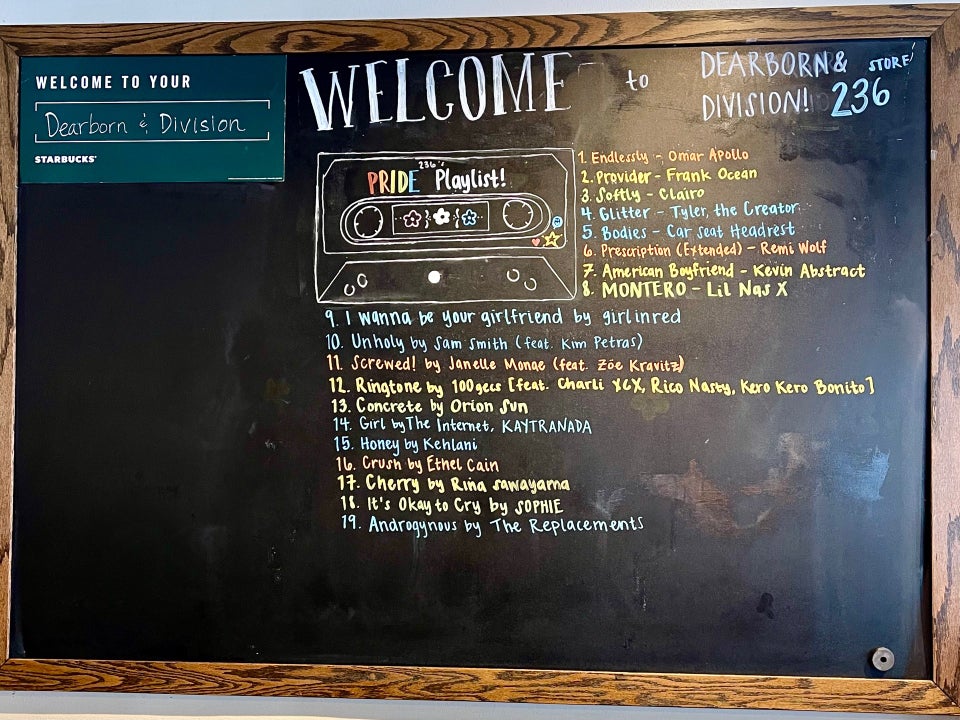 WELCOME TO YOUR
Dearborn & Division
STARBUCKS
WELCOME to DEARBORN & DIVISION! STORE 236
236's
PRIDE Playlist!
1. Endlessly - Omar Apollo
2. Provider - Frank Ocean
3. Softly - Clairo
4. Glitter - Tyler, the Creator
5. Bodies - Car seat Headrest
6. Prescription (Extended) - Remi Wolf
7. American Boyfriend - Kevin Abstract
8. MONTERO - Lil Nas X
9. I wanna be your girlfriend by girl in red
10. Unholy by Sam Smith (feat. Kim Petras)
11. Screwed! by Janelle Monae (feat. Zöe Kravitz)
12. Ringtone by 100gecs [feat. Charli XCX, Rico Nasty, Kero Kero Bonito]
13. Concrete by Orion Sun
14. Girl by The Internet, KAYTRANADA
15. Honey by Kehlani
16. Crush by Ethel Cain
17. Cherry by Rina Sawayama
18. It's Okay to Cry by SOPHIE
19. Androgynous by The Replacements